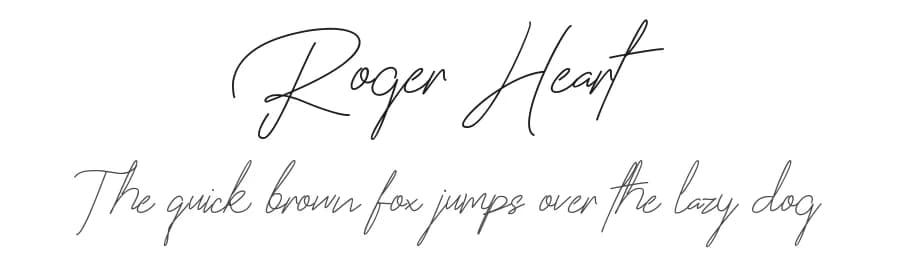 Roger Heart
The quick brown fox jumps over the lazy dog